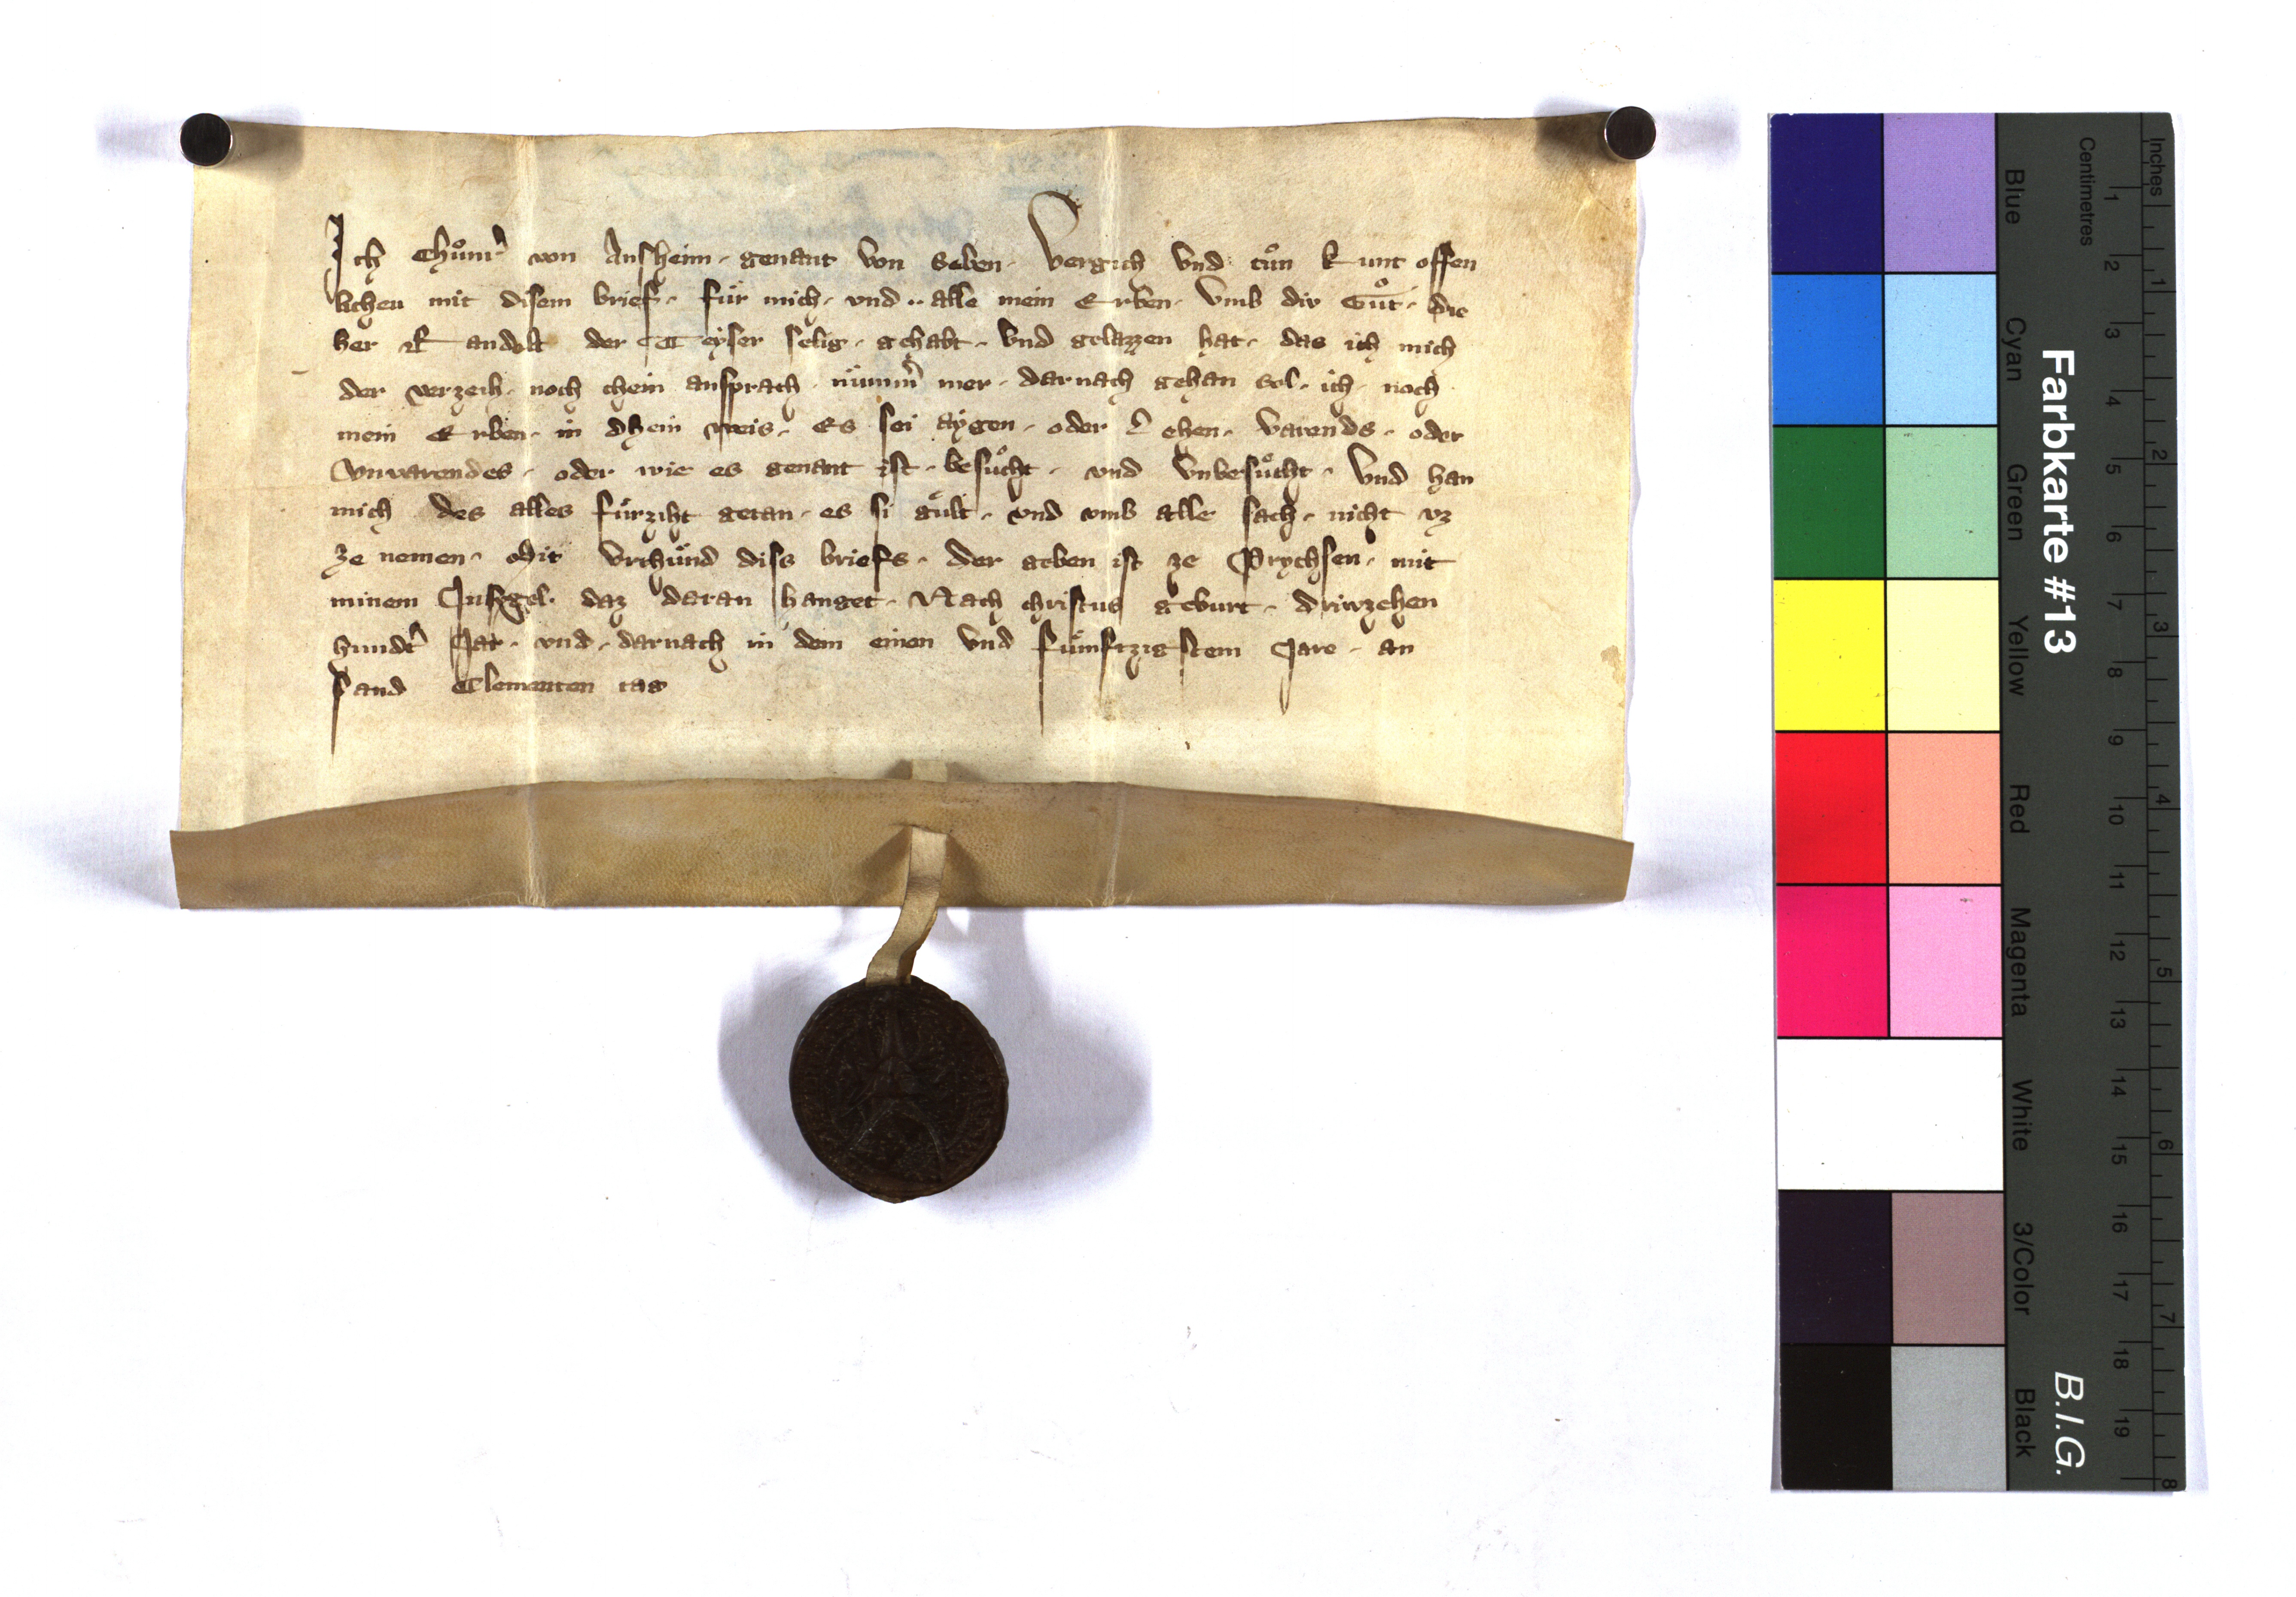 Ich Chuͦnr᷑ von Ansheim · genant von Seben · Vergich vnd tuͦn kunt offen
lichen mit disem brief · fuͤr mich · vnd ·· alle mein Erben · Vmb div Guͦt · die
her Randolt der Teyser selig · gehabt · vnd gelazzen hat · das ich mich
der verzeih · noch chein ansprach · nuͤmm᷑ mer · darnach gehan sol · ich · noch
mein Erben · in dhein weis · Es sei aygen · oder Lehen · varends · oder
vnvarendes · oder wie es genant ist · besuͦcht · vnd vnbesuͦcht · Vnd han
mich des alles fuͤrziht getan · es si guͤlt · vnd vmb alle sach · nicht vz
ze nemen · Mit vrchuͤnd diss briefs · der geben ist ze Prychsen · mit
minem Insigel · daz daran hanget · Nach christus geburt · driwzehen
hundt᷑ Jar · vnd · darnach in dem einen vnd fuͤmftzigstem Jare · an
sand Clementen tag
Farbkarte #13
B.I.G.
Centimetres
Inches
Blue
Cyan
Green
Yellow
Red
Magenta
White
3/Color
Black
1 2 3 4 5 6 7 8 9 10 11 12 13 14 15 16 17 18 19
1 2 3 4 5 6 7 8